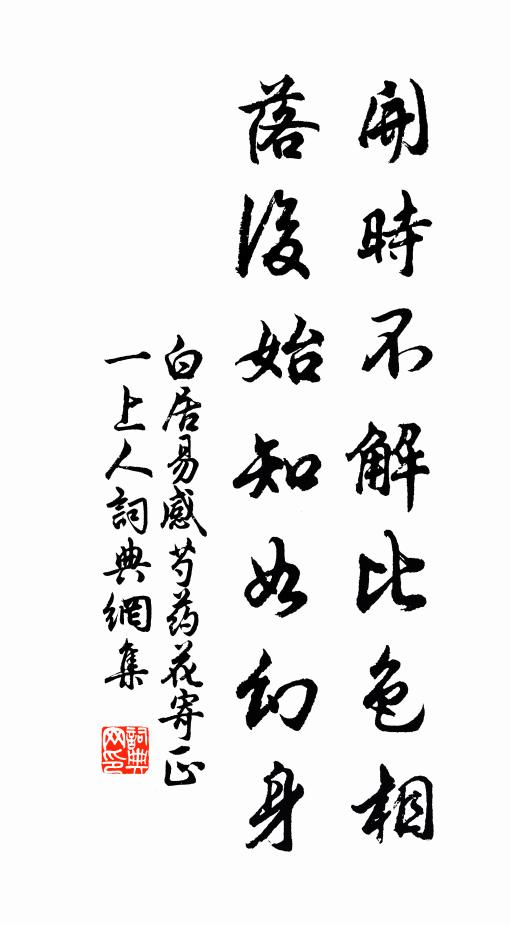 開時不解比色相
落後始知如幻身
白居易感芍药花寄正
一上人詞典網集
詞典
网印